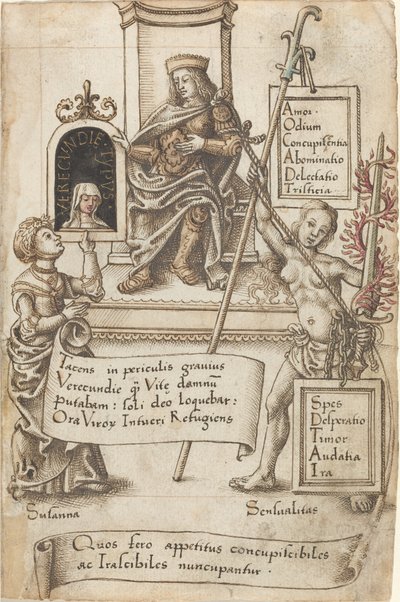 VERECUNDIE · TYPUS
Amor ·
Odium
Concupiscentia
Abominatio
Delectatio
Tristicia
Tacens in periculis gravius
Verecundie q̃ Vite damnũ
putabam : soli deo loquebar :
Ora Viroꝝ Intueri Refugiens
Spes
Desperatio
Timor
Audatia
Ira
Susanna
Sensualitas
Quos fero appetitus concupiscibiles
ac Irascibiles nuncupantur ·